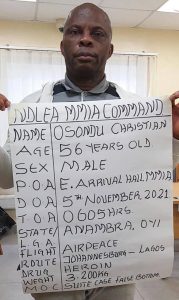 NDLEA MMIA COMMAND
NAME OSONDU CHRISTIAN
AGE 56 YEARS OLD.
SEX MALE
P.O.A E. ARRIVAL HALL MMIA
D.O.A 5TH NOVEMBER 2021
T.O.A 0605HRS
STATE/ ANAMBRA, OYI
L.G.A
FLIGHT AIRPEACE
ROUTE JOHANNESBURG - LAGOS
DRUG HEROIN
WEIGHT 3.200KG
M.O.C SUITE CASE FALSE BOTTOM.